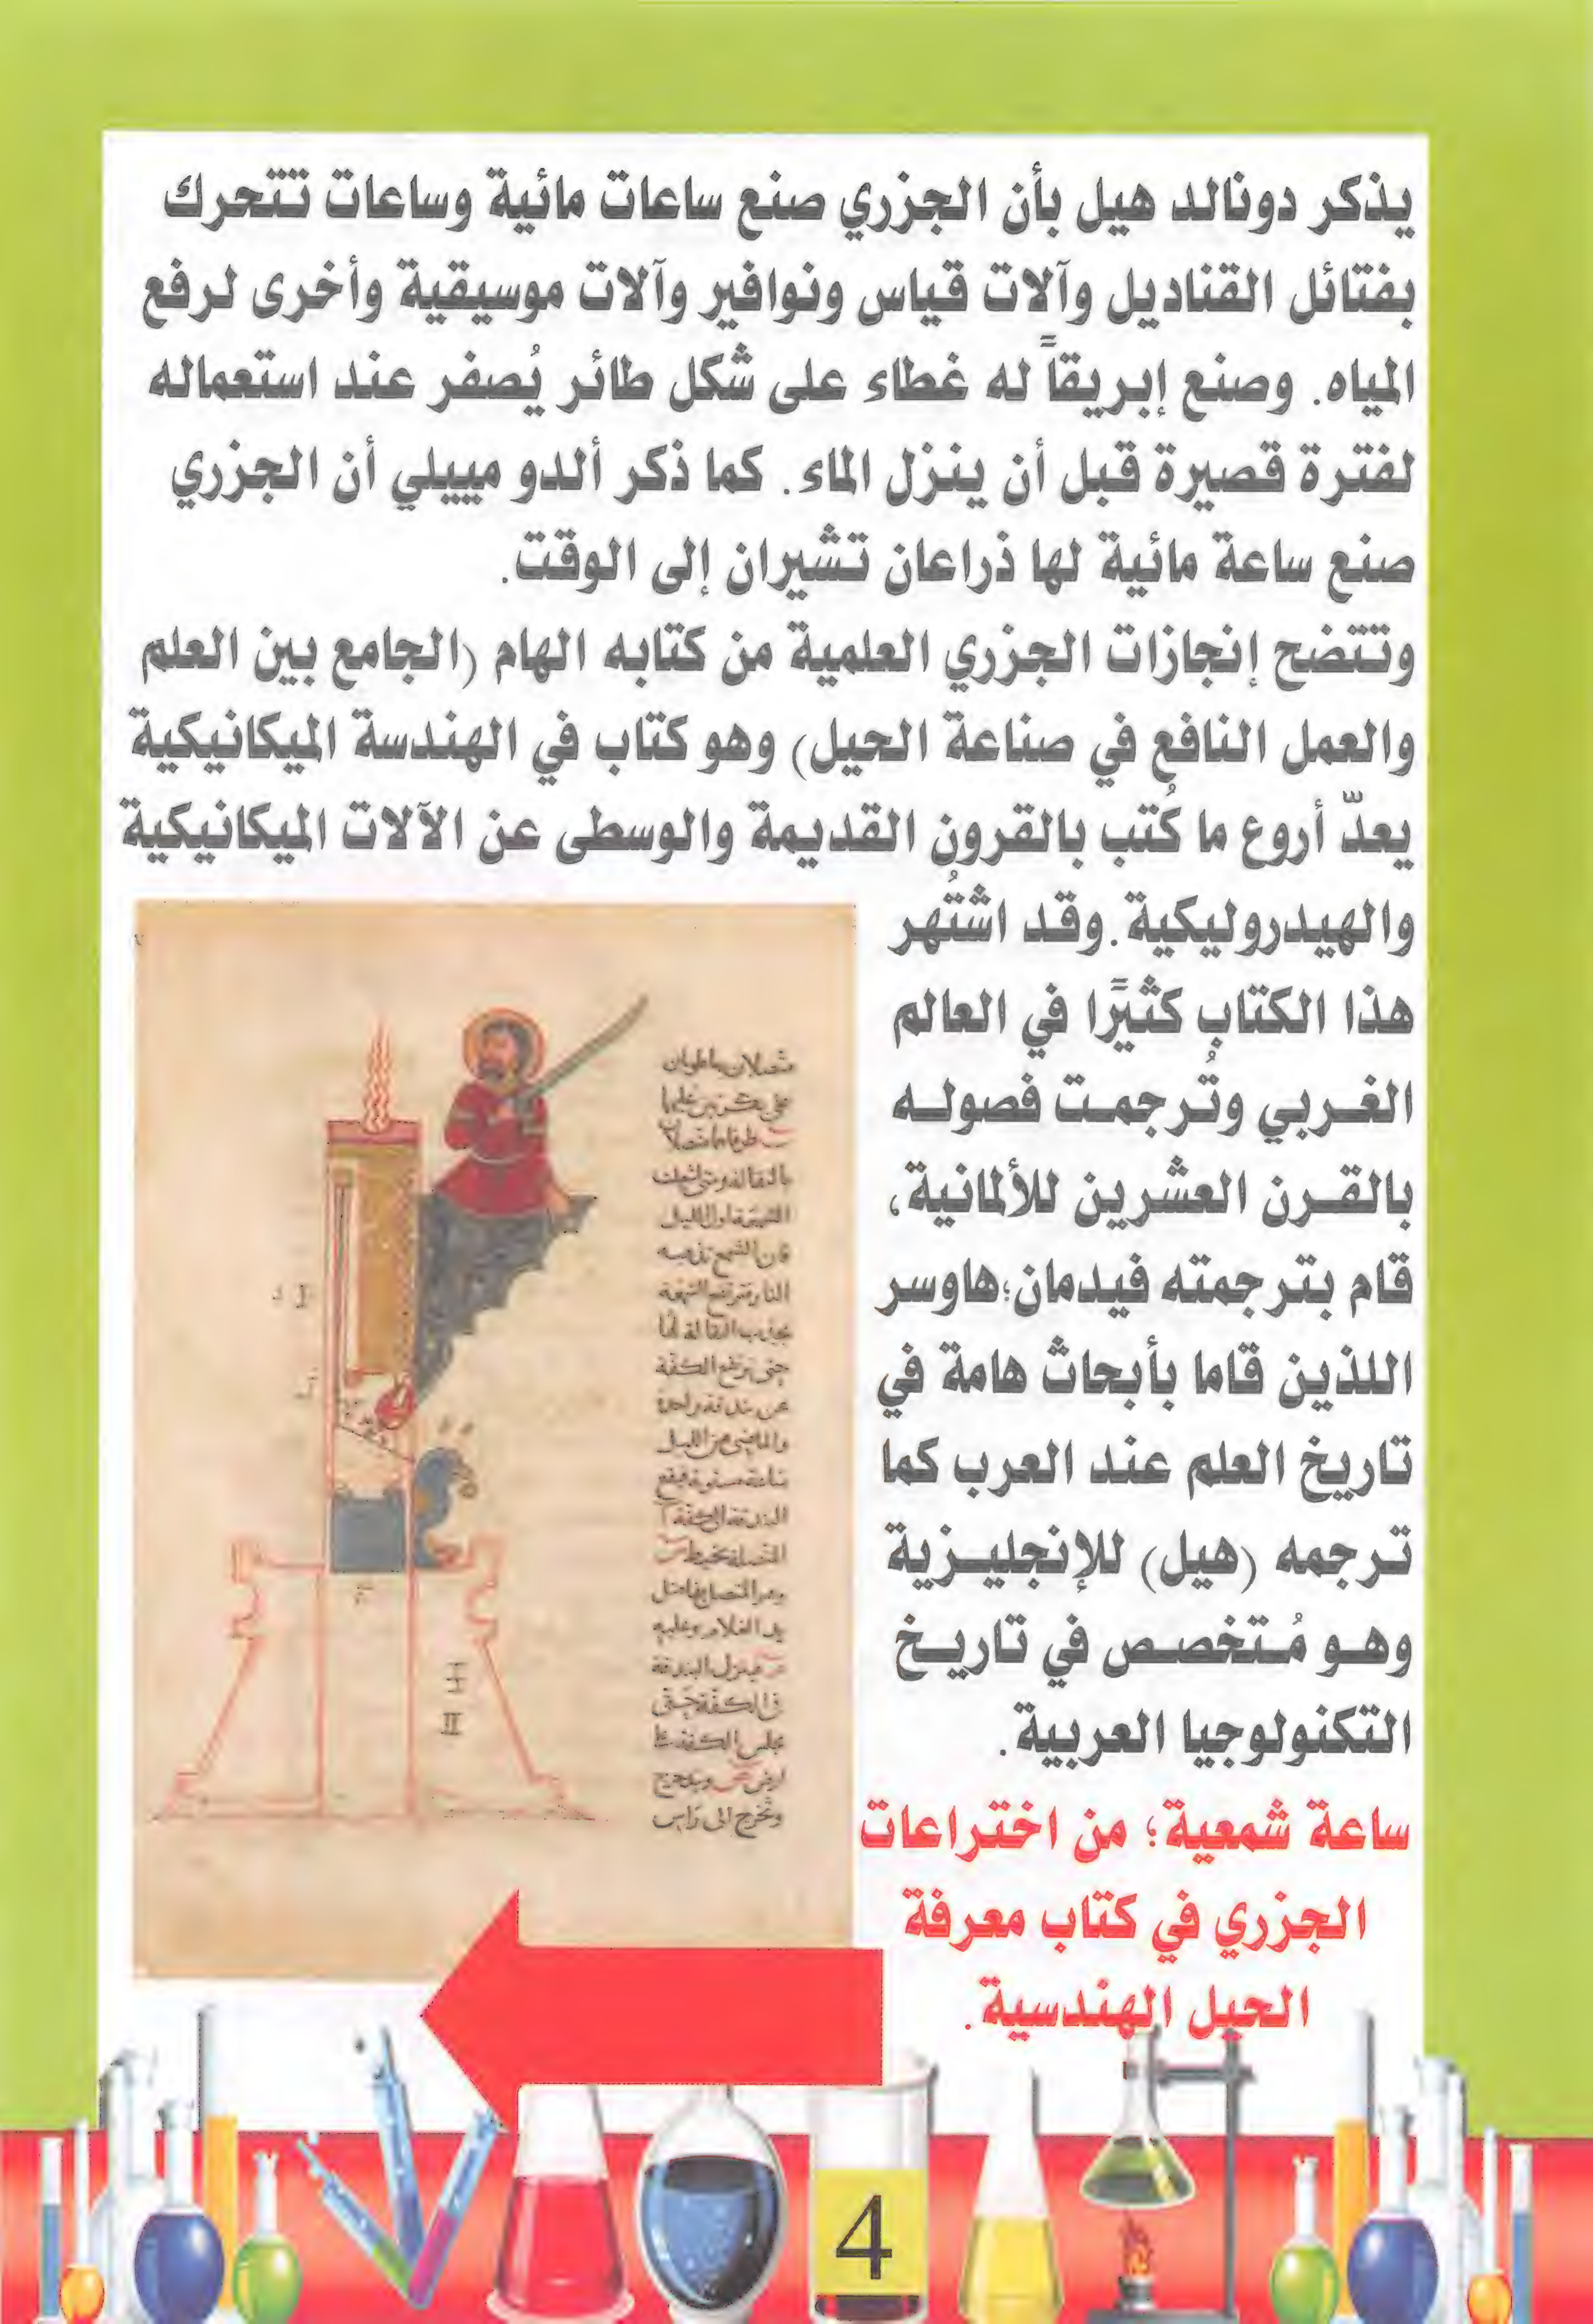 يذكر دونالد هيل بأن الجزري صنع ساعات مائية وساعات تتحرك
بفتائل القناديل وآلات قياس ونوافير وآلات موسيقية وأخرى لرفع
المياه. وصنع إبريقاً له غطاء على شكل طائر يُصفر عند استعماله
لفترة قصيرة قبل أن ينزل الماء. كما ذكر ألدو مييلي أن الجزري
صنع ساعة مائية لها ذراعان تشيران إلى الوقت.
وتتضح إنجازات الجزري العلمية من كتابه الهام (الجامع بين العلم
والعمل النافع في صناعة الحيل) وهو كتاب في الهندسة الميكانيكية
يعدّ أروع ما كُتب بالقرون القديمة والوسطى عن الآلات الميكانيكية
والهيدروليكية.وقد اشتُهر
هذا الكتاب كثيًرا في العالم
الغربي وتُرجمت فصوله
بالقرن العشرين للألمانية،
قام بترجمته فيدمان؛هاوسر
اللذين قاما بأبحاث هامة في
تاريخ العلم عند العرب كما
ترجمه (هيل) للإنجليزية
وهو مُتخصص في تاريخ
التكنولوجيا العربية.
ساعة شمعية؛ من اختراعات
الجزري في كتاب معرفة
الحيل الهندسية.
النار مرتفع
حتى ترتفع الكفة
عن بندقة واحدة
والماضي من الليل
ساعة مستوية فيقع
يد الغلام وعليه
في الكفة حتى
وتخرج الى راس
4